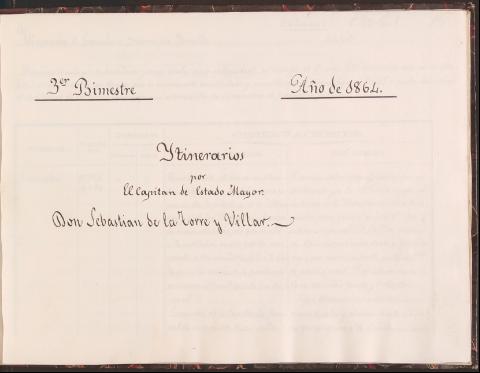 3er Bimestre
Año de 1864.
Ytinerarios
por
El Capitan de Estado Mayor.
Don Sebastian de la Torre y Villar.